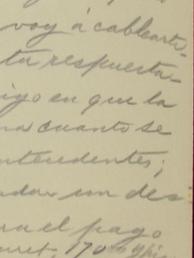 voy á cablearte
tu respuesta
digo en que la
na cuanto se
ntendentes;
ndar un des
ra el pago
170